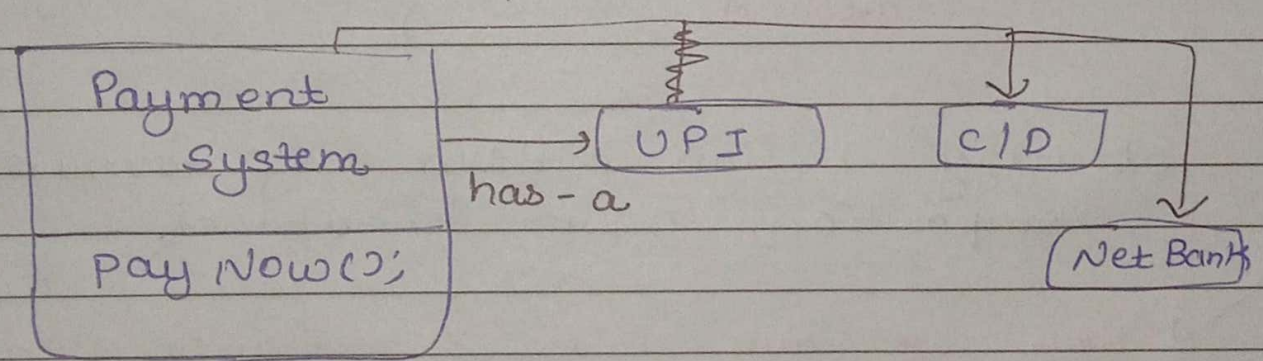 Payment
System
Pay Now();
has-a
UPI
C/D
Net Bank